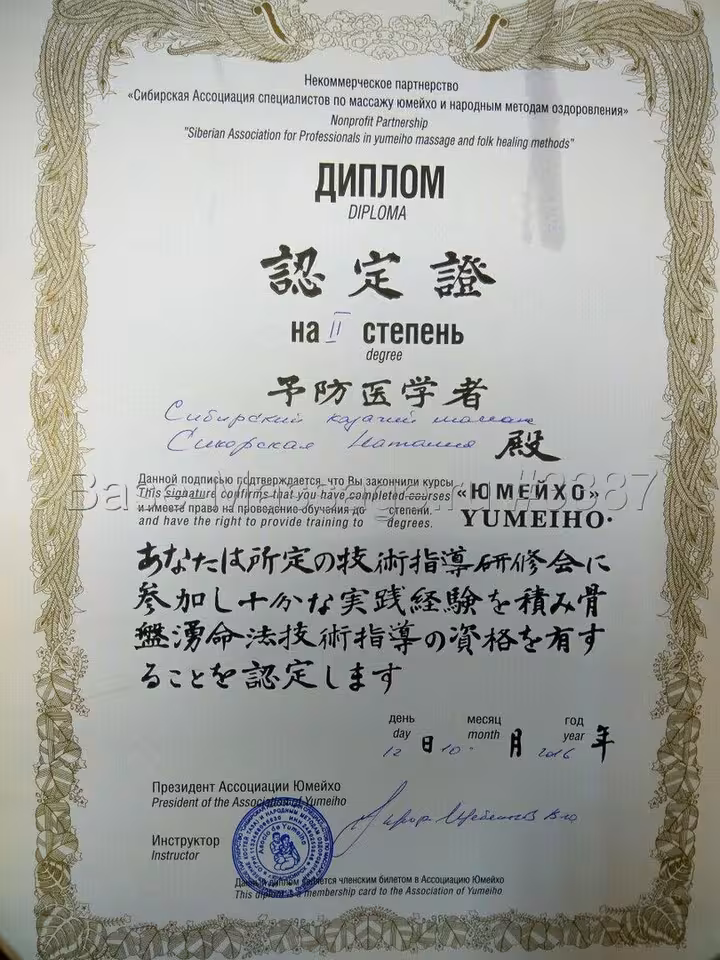 Некоммерческое партнерство
«Сибирская Ассоциация специалистов по массажу юмейхо и народным методам оздоровления»
Nonprofit Partnership
"Siberian Association for Professionals in yumeiho massage and folk healing methods"
ДИПЛОМ
DIPLOMA
認定證
на II степень
degree
予防医学者
Сибирский казачий массаж
Сикорская Наталия 殿
Данной подписью подтверждается, что Вы закончили курсы
This signature confirms that you have completed courses «ЮМЕЙХО»
и имеете право на проведение обучения до степени.
and have the right to provide training to degrees. YUMEIHO.
あなたは所定の技術指導研修会に
参加し十分な実践経験を積み骨
盤湧命法技術指導の資格を有す
ることを認定します
день месяц год
day month year
12 日 10. 月 2016 年
Президент Ассоциации Юмейхо
President of the Association of Yumeiho
Инструктор
Instructor
Данный диплом является членским билетом в Ассоциацию Юмейхо
This diploma is a membership card to the Association of Yumeiho